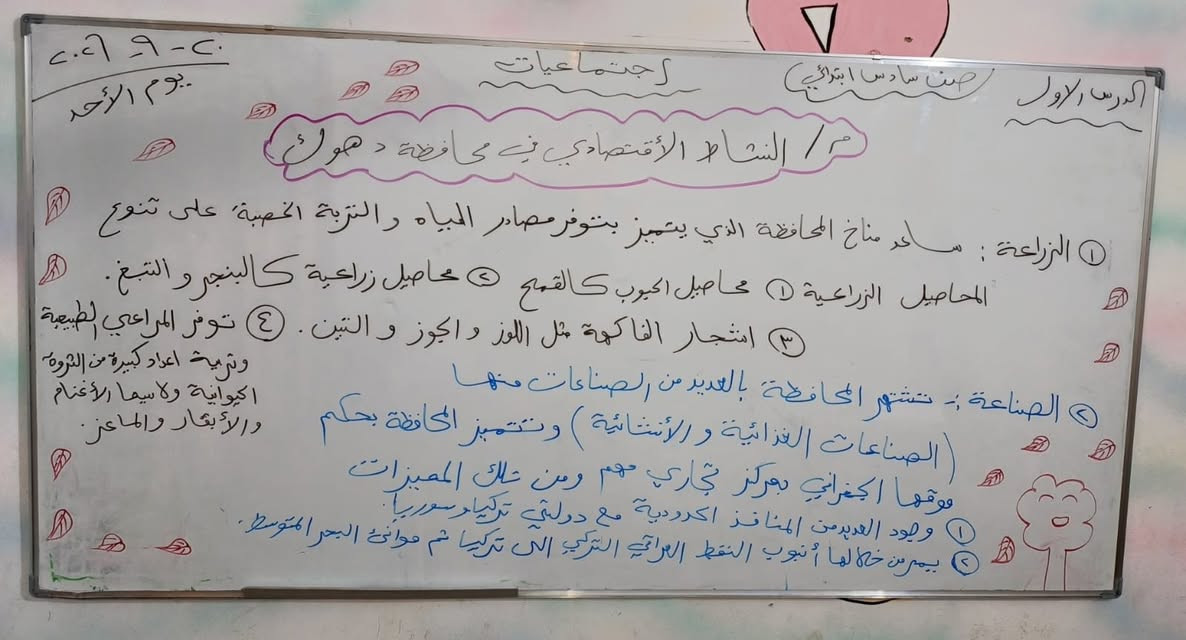 الدرس الاول
صف سادس ابتدائي
اجتماعيات
٢٠-٩-٢٠٢٦
يوم الأحد
م/ النشاط الأقتصادي في محافظة دهوك
① الزراعة : ساعد مناخ المحافظة الذي يتميز بتوفر مصادر المياه و التربة الخصبة على تنوع
المحاصيل الزراعية ① محاصيل الحبوب كالقمح ② محاصيل زراعية كالبنجر و التبغ .
③ اشجار الفاكهة مثل اللوز و الجوز و التين . ④ توفر المراعي الطبيعية
وتربية اعداد كبيرة من الثروة
الحيوانية ولاسيما الأغنام
والأبقار والماعز.
② الصناعة :- تشتهر المحافظة بالعديد من الصناعات منها
(الصناعات الغذائية و الأنشائية) وتتميز المحافظة بحكم
موقها الجغرافي بمركز تجاري مهم ومن تلك المميزات
① وجود العديد من المنافذ الحدودية مع دولتي تركيا وسوريا.
② يمر من خلالها أنبوب النفط العراقي التركي الى تركيا ثم موانئ البحر المتوسط .